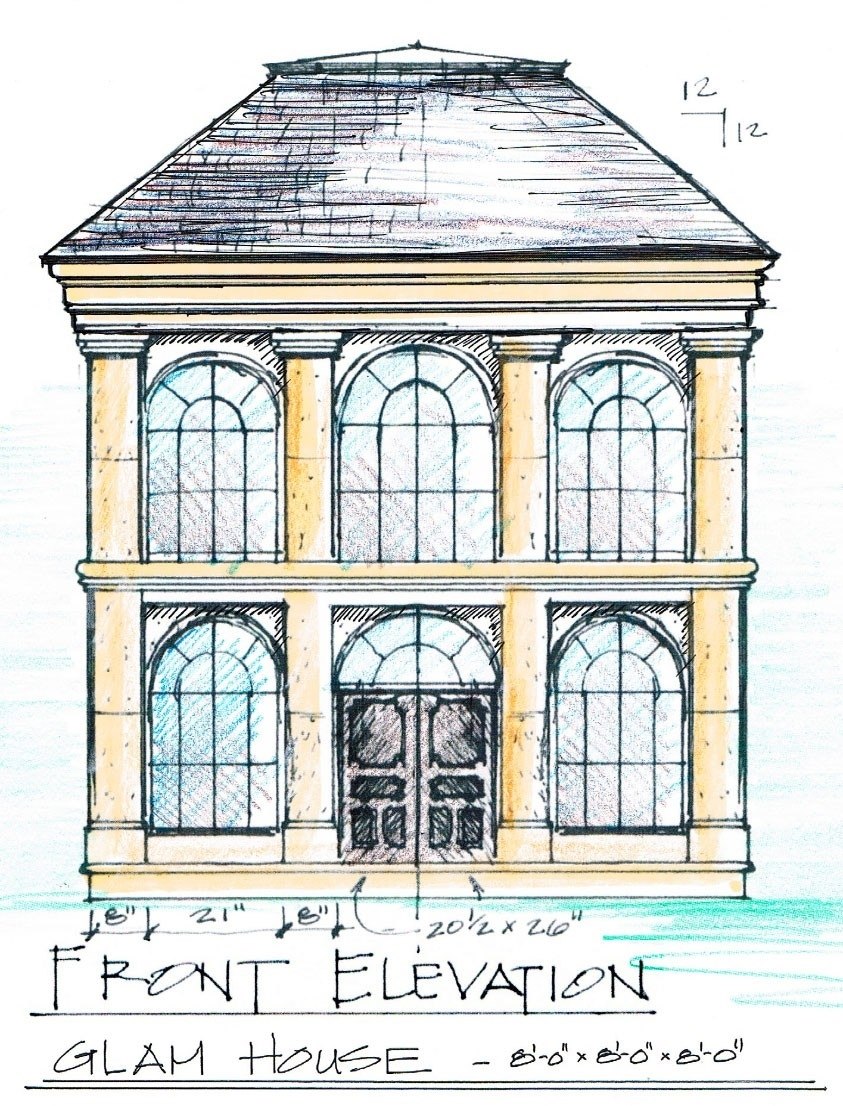 12
12
8" 21" 8" 20 1/2 x 26"
FRONT ELEVATION
GLAM HOUSE - 8'-0" x 8'-0" x 8'-0"